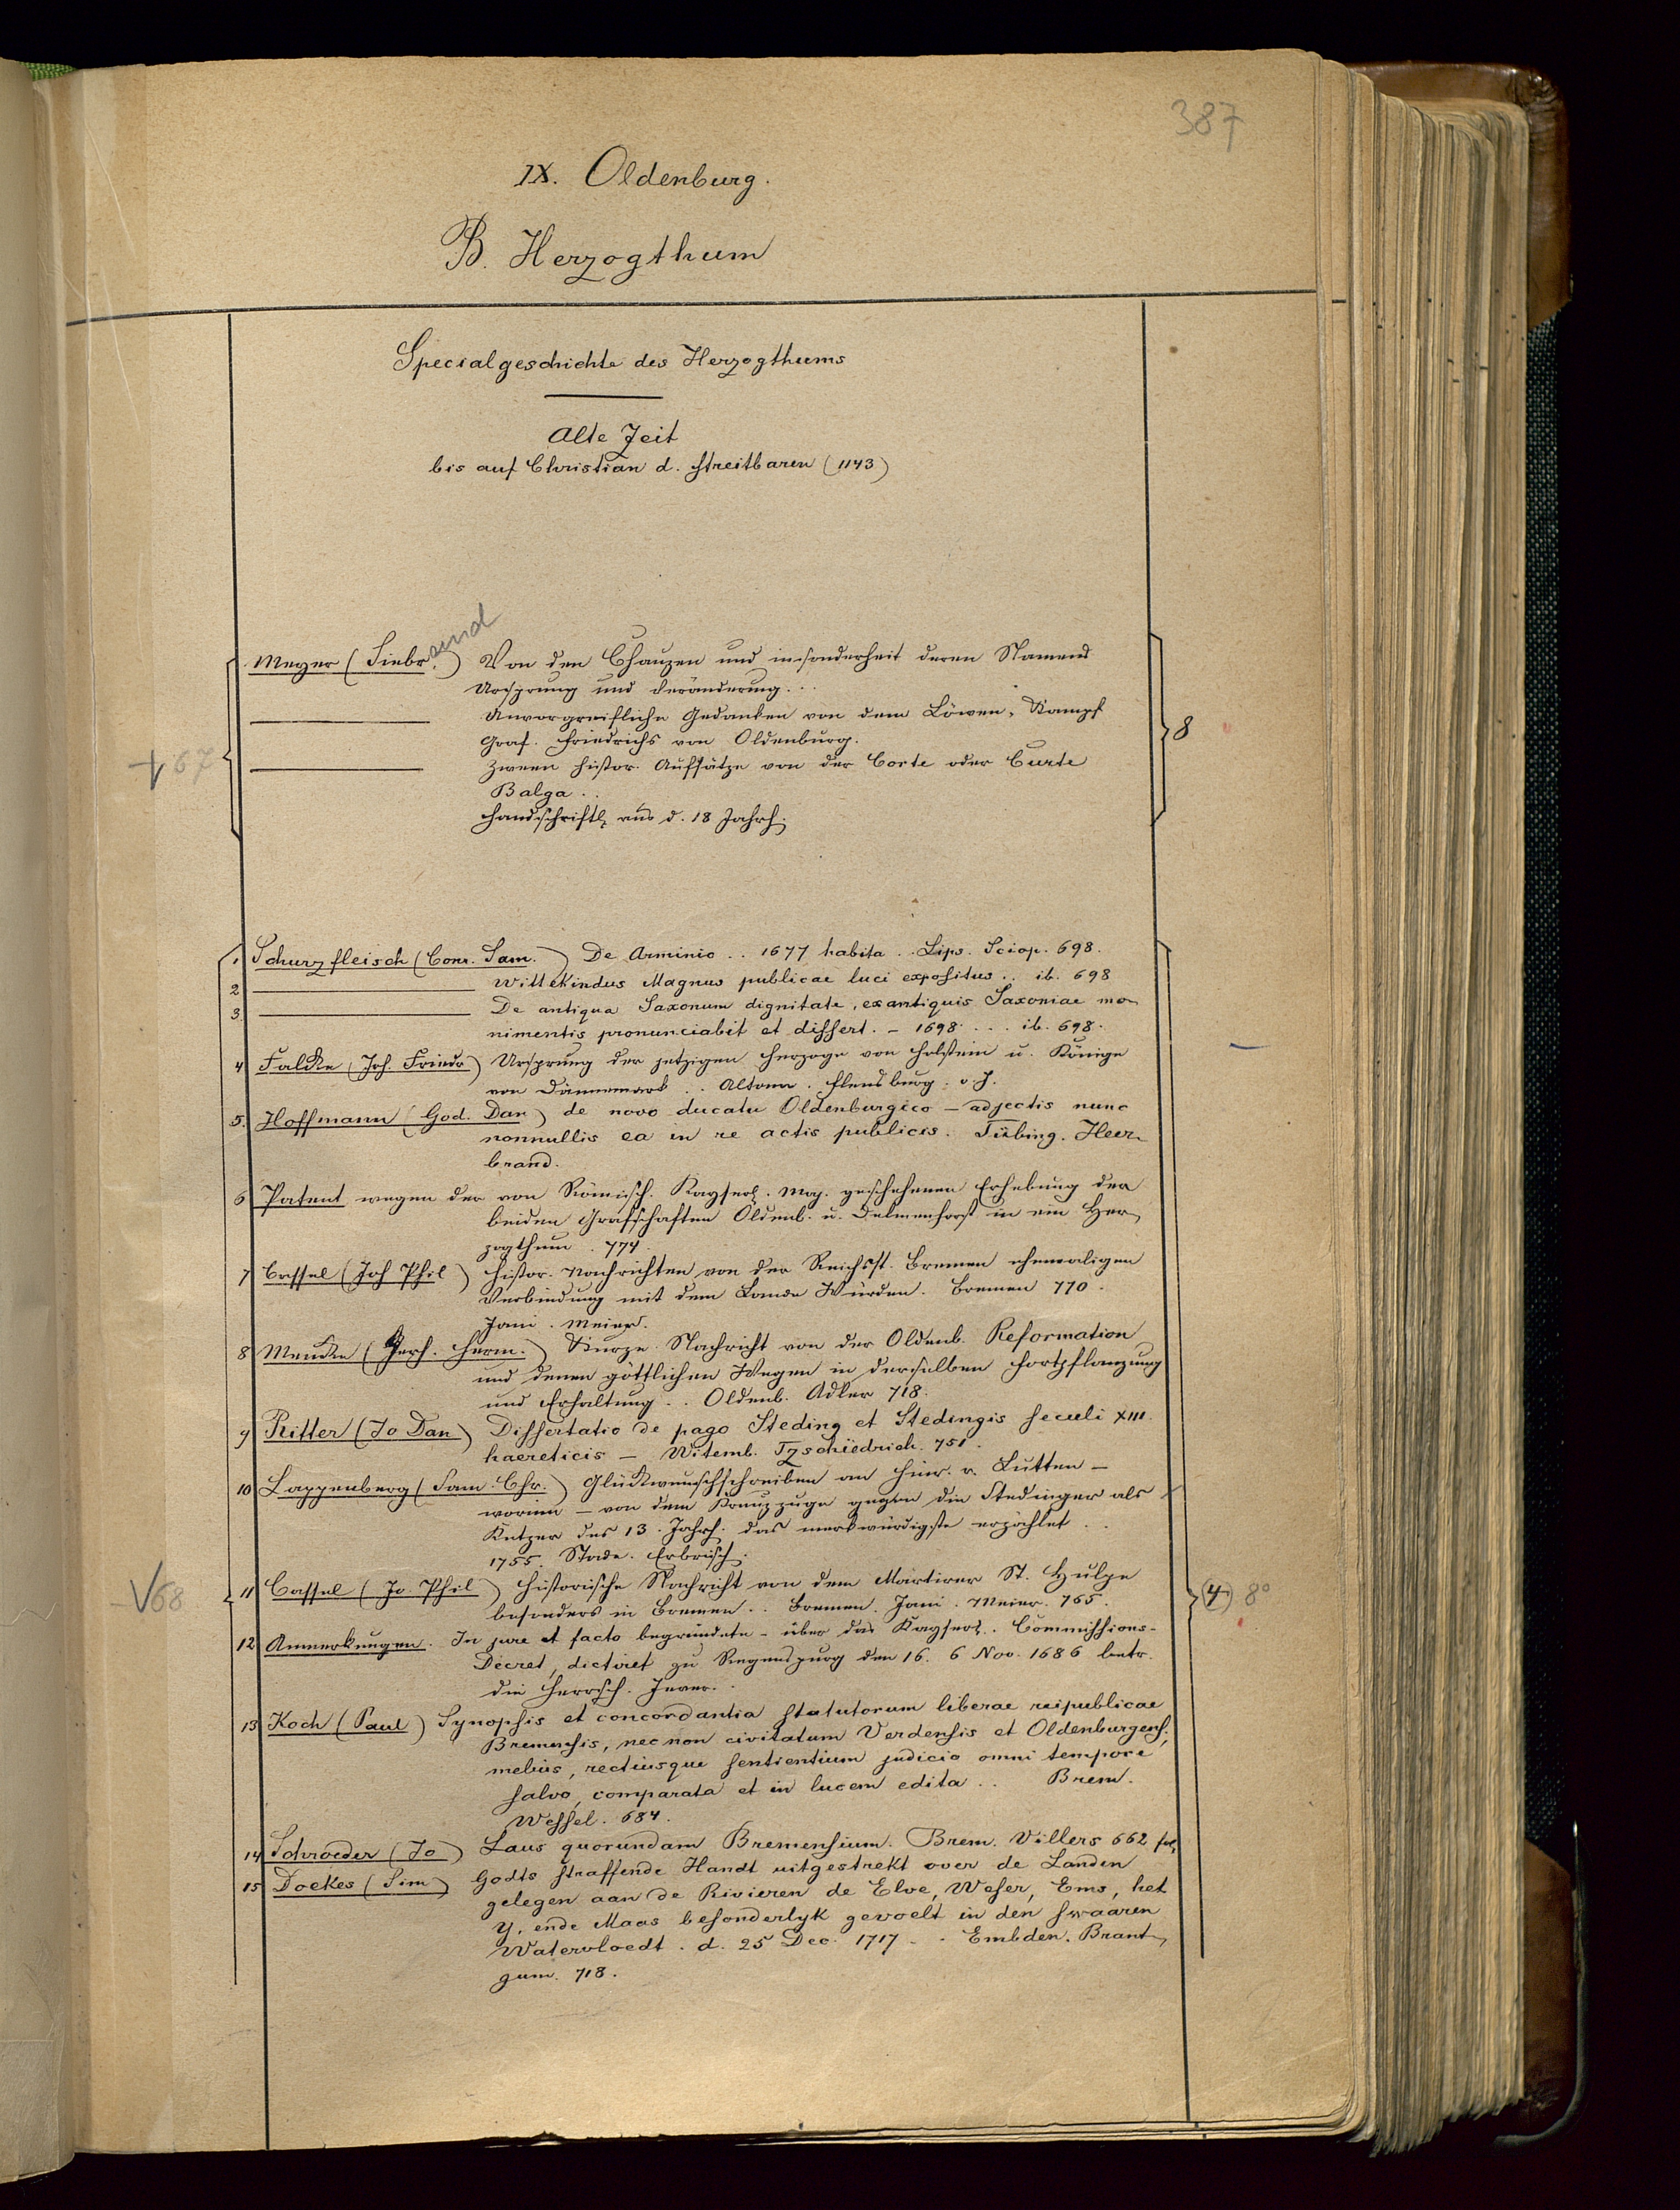 387
IX. Oldenburg.
B. Herzogthum
Specialgeschichte des Herzogthums
Alte Zeit
bis auf Christian d. Streitbaren (1143)
Meyer (Siebr.rand) Von den Chauzen und insonderheit deren Namens
Ursprung und Veränderung...
Unvorgreifliche Gedanken von dem Löwen-Kampf
Graf. Friedrichs von Oldenburg.
+ 67
8
Zween histor. Aufsätze von der Corte oder Curte
Balga..
Handschriftl. aus d. 18 Jahrh.
1 Schurzfleisch (Conr. Sam.) De Arminio .. 1677 habita .. Lips. Sciop. 698.
2 Wittekindus Magnus publicae luci expositus .. ib. 698
3. De antiqua Saxonum dignitate, ex antiquis Saxoniae mo-
nimentis pronunciabit et dissert. - 1698 ... ib. 698.
4 Falcke (Joh. Friedr) Ursprung der jetzigen Herzoge von Holstein u. Könige
von Dännemark .. Altona. Flensburg. o. J.
5. Hoffmann (God. Dan) de novo ducatu Oldenburgico - adjectis nunc
nonnullis ea in re actis publicis. Tübing. Heer-
brand.
6 Patent wegen der von Römisch. Kayserl. Maj. geschehenen Erhebung der
beiden Grafschaften Oldenb. u. Delmenhorst in ein Her-
zogthum. 774.
7 Cassel (Joh Phil) Histor. Nachrichten von der Reichsst. Bremen ehemaligen
Verbindung mit dem Lande Würden. Bremen 770.
Jani. Meier.
8 Meucke (Gerh. Herm.) Kurze Nachricht von der Oldenb. Reformation
und denen göttlichen Wegen in derselben Fortpflanzung
und Erhaltung .. Oldenb. Adler 718.
9 Ritter (Jo Dan) Dissertatio de pago Steding et Stedingis seculi XIII.
haereticis - Witemb. Tzschiedrich. 751.
10 Lappenberg (Sam. Chr.) Glückwunschschreiben an Hinr. v. Lutten -
worinn - von dem Kreuzzuge gegen die Stedinger als
Ketzer des 13. Jahrh. das merkwürdigste erzählet ..
1755. Stade. Erbrich.
√68
11 Cassel (Jo Phil) Historische Nachricht von dem Märtirer St. Hulpe
(4) 8°
besonders in Bremen .. Bremen. Jani. Meier. 765.
12 Anmerkungen. In jure et facto begründete - über das Kayserl. Commissions-
Decret, dictiret zu Regenspurg den 16. 6 Nov. 1686 betr.
die Herrsch. Jever..
13 Koch (Paul) Synopsis et concordantia statutorum liberae reipublicae
Bremensis, nec non civitatum Verdensis et Oldenburgens.,
melius, rectiusque sentientium judicio omni tempore
salvo, comparata et in lucem edita .. Brem.
Wessel. 684.
14 Schroeder (Jo) Laus quorundam Bremensium. Brem. Villers 662 fol.
15 Doekes (Sim) Godts straffende Handt uitgestrekt over de Landen
gelegen aan de Rivieren de Elve, Weser, Ems, het
Y, ende Maas besonderlyk gevoelt in den swaaren
Watervloedt. d. 25 Dec. 1717 .. Embden. Brant-
gum. 718.